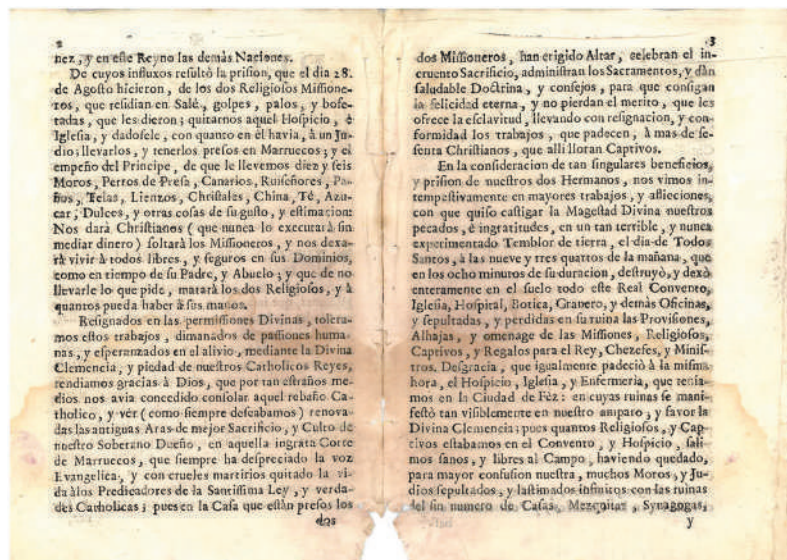 2
nez, y en este Reyno las demàs Naciones.
De cuyos influxos resultò la prision, que el dia 28.
de Agosto hicieron, de los dos Religiosos Missione-
ros, que residian en Salè, golpes, palos, y bofe-
tadas, que les dieron; quitarnos aquel Hospicio, è
Iglesia, y dadosele, con quanto en èl havia, à un Ju-
dio; llevarlos, y tenerlos presos en Marruecos; y el
empeño del Principe, de que le llevemos diez y seis
Moros, Perros de Presa, Canarios, Ruiseñores, Pa-
ños, Telas, Lienzos, Christales, China, Tè, Azu-
car; Dulces, y otras cosas de su gusto, y estimacion:
Nos darà Christianos (que nunca lo executarà sin
mediar dinero) soltarà los Missioneros, y nos dexa-
rà vivir à todos libres, y seguros en sus Dominios,
como en tiempo de su Padre, y Abuelo; y que de no
llevarle lo que pide, matarà los dos Religiosos, y à
quantos pueda haber à sus manos.
Resignados en las permissiones Divinas, tolera-
mos estos trabajos, dimanados de passiones huma-
nas, y esperanzados en el alivio, mediante la Divina
Clemencia, y piedad de nuestros Catholicos Reyes,
rendiamos gracias à Dios, que por tan estraños me-
dios nos avia concedido consolar aquel rebaño Ca-
tholico, y vèr (como siempre deseabamos) renova-
das las antiguas Aras de mejor Sacrificio, y Culto de
nuestro Soberano Dueño, en aquella ingrata Corte
de Marruecos, que siempre ha despreciado la voz
Evangelica, y con crueles martirios quitado la vi-
da àlos Predicadores de la Santissima Ley, y verda-
des Catholicas; pues en la Casa que estàn presos los
dos
3
dos Missioneros, han erigido Altar, celebran el in-
cruento Sacrificio, administran los Sacramentos, y dàn
saludable Doctrina, y consejos, para que consigan
la felicidad eterna, y no pierdan el merito, que les
ofrece la esclavitud, llevando con resignacion, y con-
formidad los trabajos, que padecen, à mas de se-
senta Christianos, que alli lloran Captivos.
En la consideracion de tan singulares beneficios,
y prision de nuestros dos Hermanos, nos vimos in-
tempestivamente en mayores trabajos, y aflicciones,
con que quiso castigar la Magestad Divina nuestros
pecados, è ingratitudes, en un tan terrible, y nunca
experimentado Temblor de tierra, el dia de Todos
Santos, à las nueve y tres quartos de la mañana, que
en los ocho minutos de su duracion, destruyò, y dexò
enteramente en el suelo todo este Real Convento,
Iglesia, Hospital, Botica, Granero, y demàs Oficinas,
y sepultadas, y perdidas en su ruina las Provisiones,
Alhajas, y omenage de las Missiones, Religiosos,
Captivos, y Regalos para el Rey, Chezefes, y Minis-
tros. Desgracia, que igualmente padeciò à la misma
hora, el Hospicio, Iglesia, y Enfermeria, que tenia-
mos en la Ciudad de Fèz: en cuyas ruinas se mani-
festò tan visiblemente en nuestro amparo, y favor la
Divina Clemencia; pues quantos Religiosos, y Cap-
tivos estabamos en el Convento, y Hospicio, sali-
mos sanos, y libres al Campo, haviendo quedado,
para mayor confusion nuestra, muchos Moros, y Ju-
dios sepultados, y lastimados infinitos con las ruinas
del sin numero de Casas, Mezquitas, Synagogas,
y